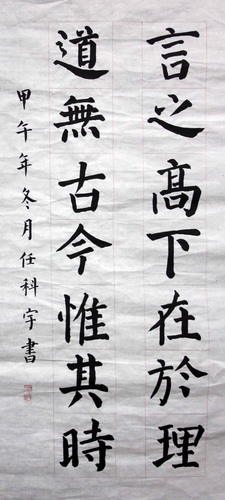 言之高下在於理
道無古今惟其時
甲午年冬月任科宇書